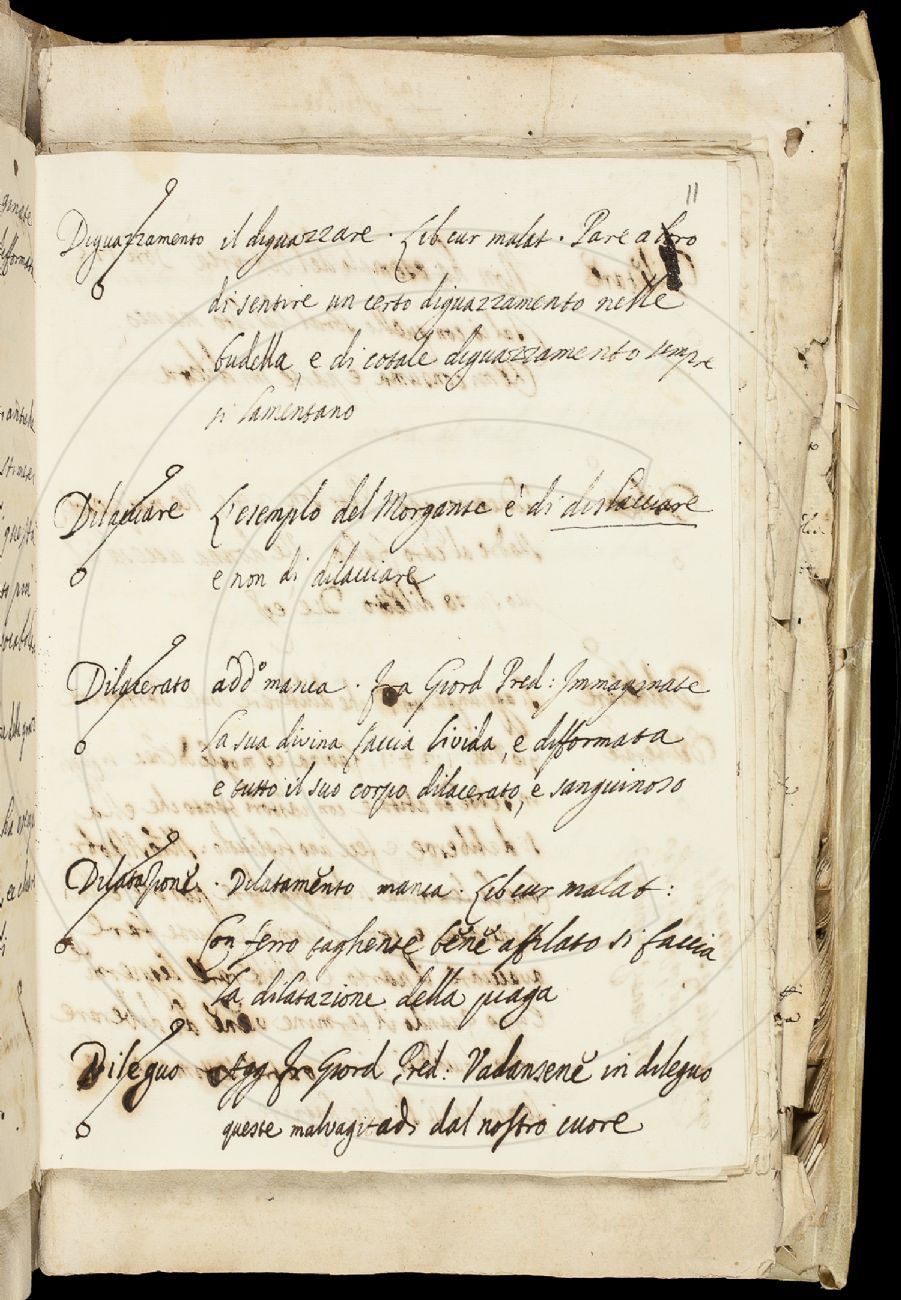 11
Diguazzamento il diguazzare. Lib cur malat. Pare a loro
di sentire un certo diguazzamento nelle
budella, e di cotale diguazzamento sempre
si lamentano
Dilacciare L'esemplo del Morgante è di dislacciare
e non di dilacciare
Dilacerato add.o manca. Fra Giord Pred: Immaginate
la sua divina faccia livida, e difformata
e tutto il suo corpo dilacerato, e sanguinoso
Dilatazione. Dilatamento manca. Lib cur malat:
Con ferro tagliente bene affilato si faccia
la dilatazione della piaga
Dileguo Agg Fr Giord Pred: Vadansene in dileguo
queste malvagitadi dal nostro cuore